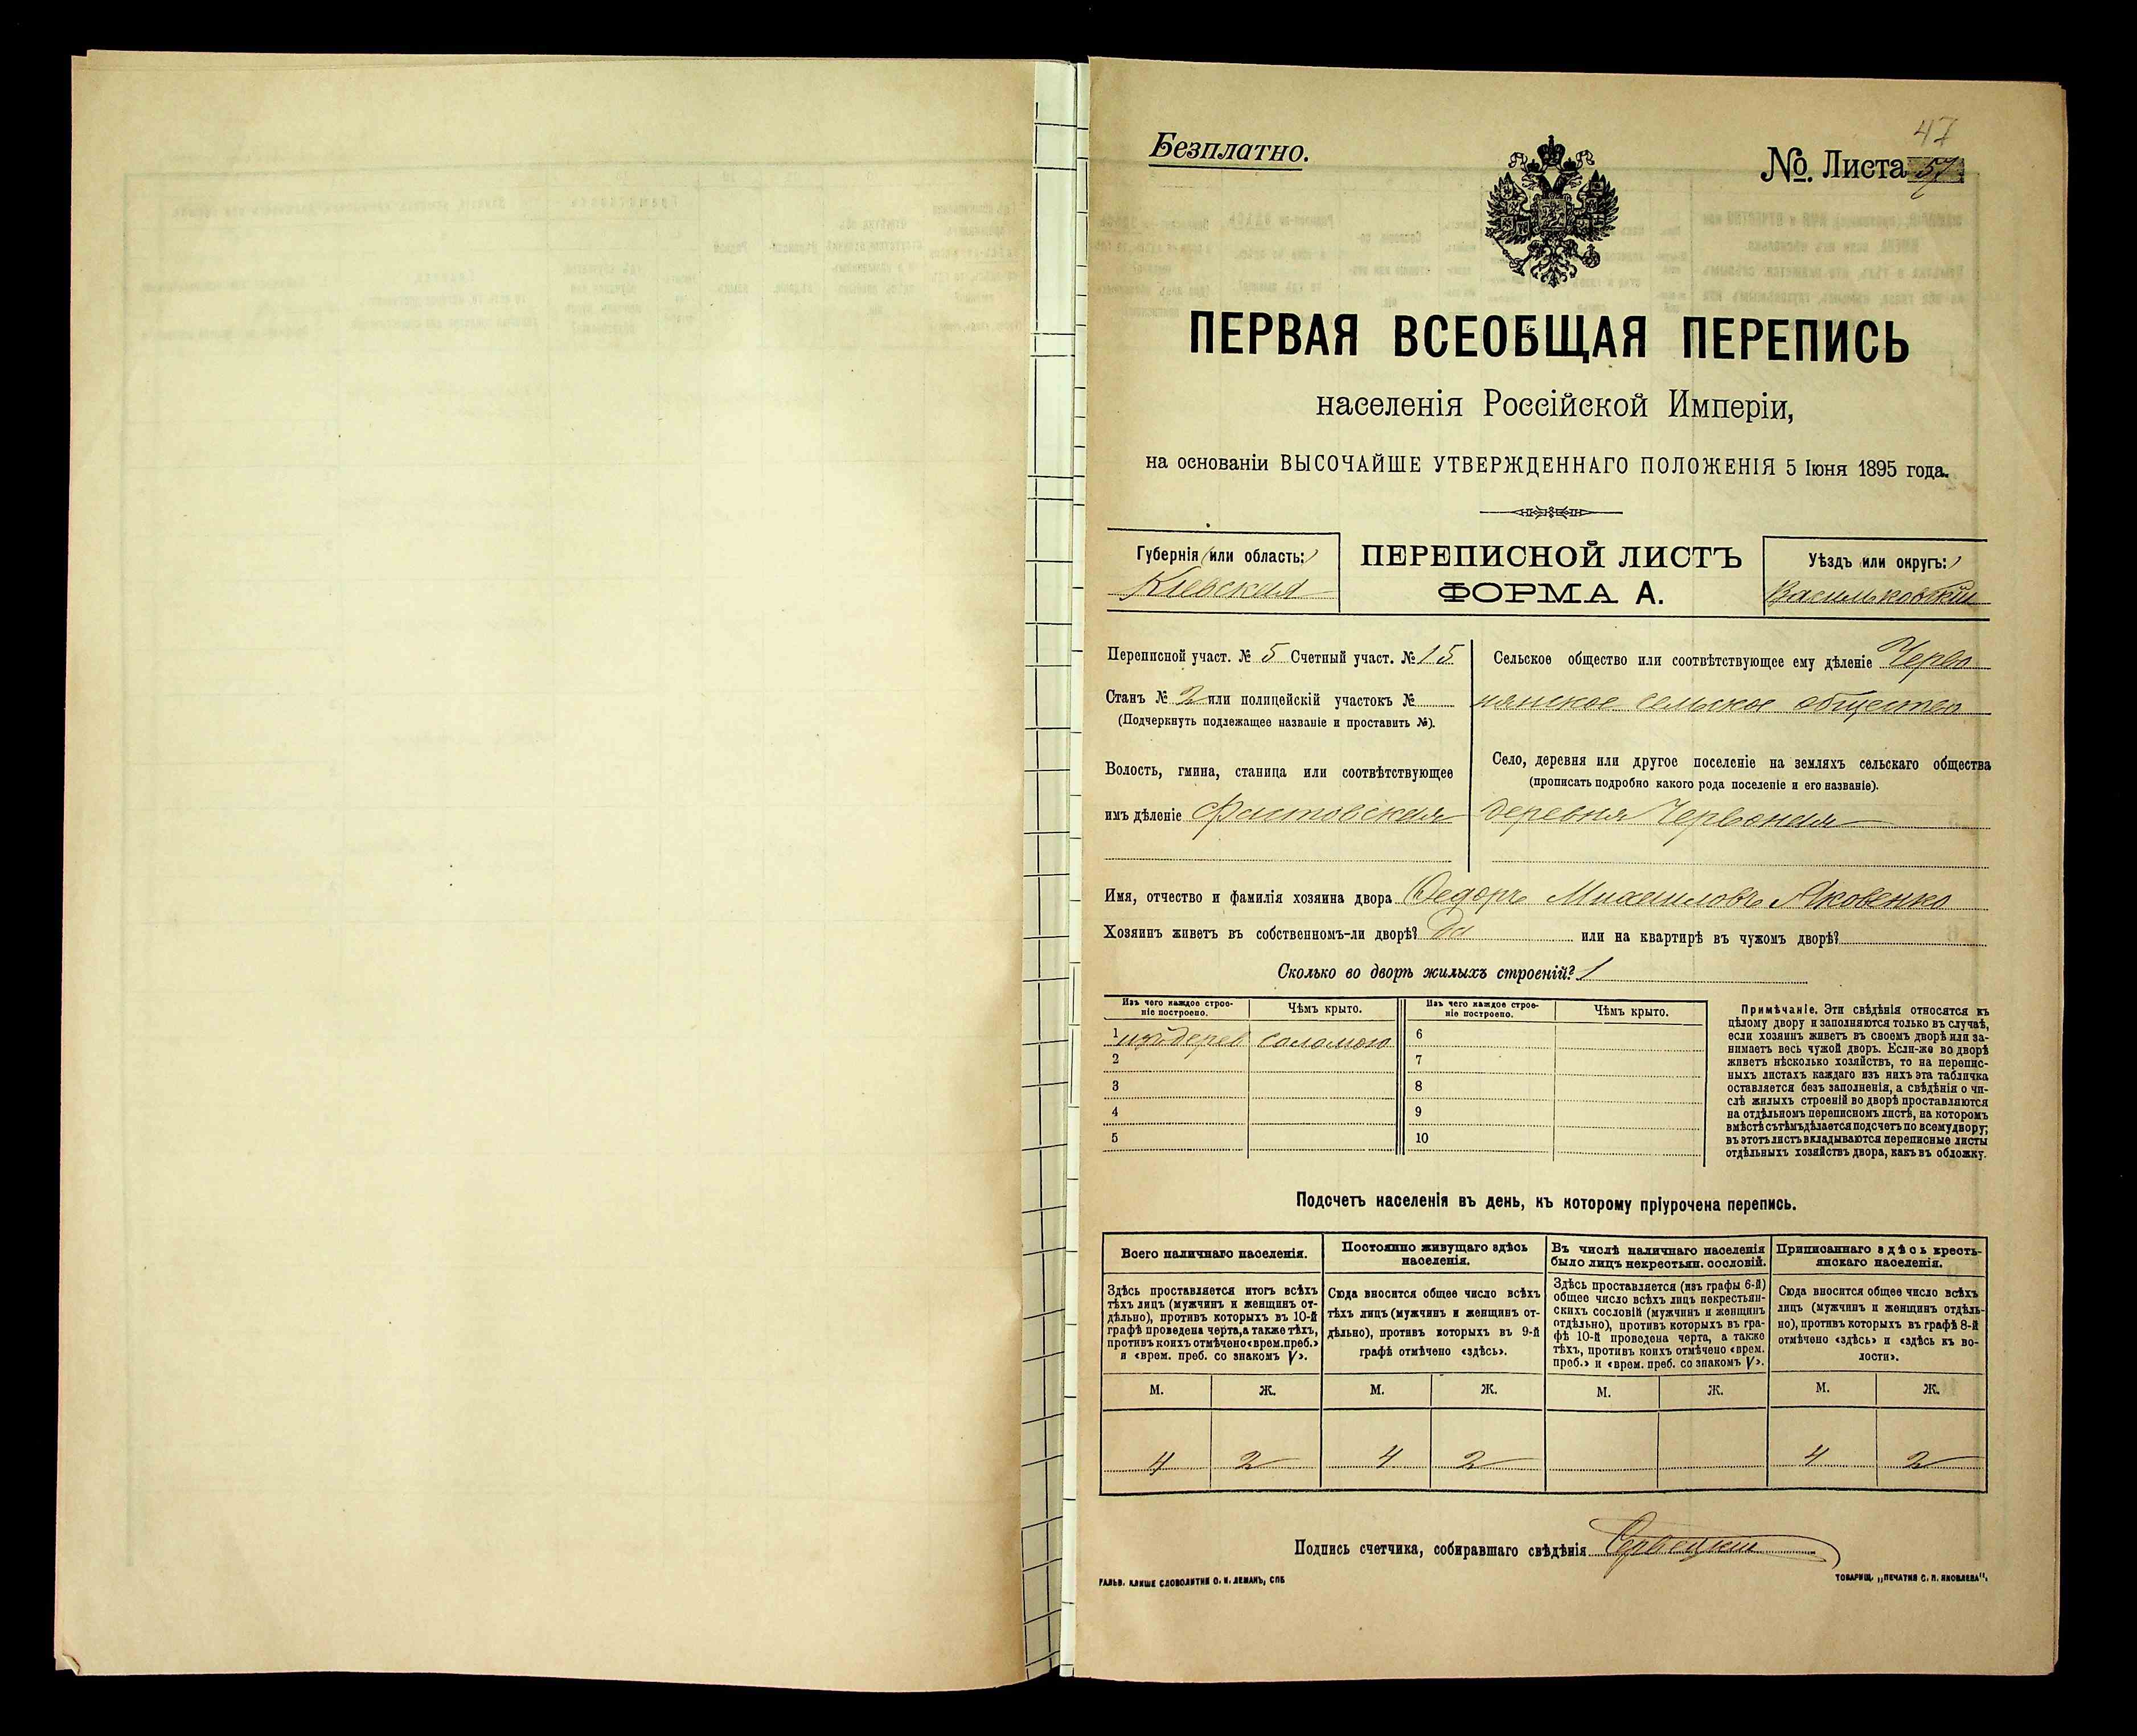 47
Безплатно.
№. Листа 57
ПЕРВАЯ ВСЕОБЩАЯ ПЕРЕПИСЬ
населенія Россійской Имперіи,
на основаніи ВЫСОЧАЙШЕ УТВЕРЖДЕННАГО ПОЛОЖЕНІЯ 5 Іюня 1895 года.
Губернія или область:
Кіевская
ПЕРЕПИСНОЙ ЛИСТЪ
ФОРМА А.
Уѣздъ или округъ:
Васильковскій
Переписной участ. № 5 Счетный участ. № 15
Станъ № 2 или полицейскій участокъ №
(Подчеркнуть подлежащее названіе и проставить №).
Волость, гмина, станица или соотвѣтствующее
имъ дѣленіе Фастовская
Сельское общество или соотвѣтствующее ему дѣленіе Черво
нянское сельское общество
Село, деревня или другое поселеніе на земляхъ сельскаго общества
(прописать подробно какого рода поселеніе и его названіе).
деревня Червоная
Имя, отчество и фамилія хозяина двора Федоръ Михаиловъ Яковенко
Хозяинъ живетъ въ собственномъ-ли дворѣ? Да или на квартирѣ въ чужомъ дворѣ?
Сколько во дворѣ жилыхъ строеній? 1
Изъ чего каждое строе-
ніе построено.
Чѣмъ крыто.
Изъ чего каждое строе-
ніе построено.
Чѣмъ крыто.
1 изъ дерев соломою 6
2 7
3 8
4 9
5 10
Примѣчаніе. Эти свѣдѣнія относятся къ
цѣлому двору и заполняются только въ случаѣ,
если хозяинъ живетъ въ своемъ дворѣ или за-
нимаетъ весь чужой дворъ. Если-же во дворѣ
живетъ нѣсколько хозяйствъ, то на перепис-
ныхъ листахъ каждаго изъ нихъ эта табличка
оставляется безъ заполненія, а свѣдѣнія о чи-
слѣ жилыхъ строеній во дворѣ проставляются
на отдѣльномъ переписномъ листѣ, на которомъ
вмѣстѣ съ тѣмъ дѣлается подсчетъ по всему двору;
въ этотъ листъ вкладываются переписные листы
отдѣльныхъ хозяйствъ двора, какъ въ обложку.
Подсчетъ населенія въ день, къ которому пріурочена перепись.
Всего наличнаго населенія.
Здѣсь проставляется итогъ всѣхъ
тѣхъ лицъ (мужчинъ и женщинъ от-
дѣльно), противъ которыхъ въ 10-й
графѣ проведена черта, а также тѣхъ,
противъ коихъ отмѣчено «врем. преб.»
и «врем. преб. со знакомъ V».
Постоянно живущаго здѣсь
населенія.
Сюда вносится общее число всѣхъ
тѣхъ лицъ (мужчинъ и женщинъ от-
дѣльно), противъ которыхъ въ 9-й
графѣ отмѣчено «здѣсь».
Въ числѣ наличнаго населенія
было лицъ некрестьян. сословій.
Здѣсь проставляется (изъ графы 6-й)
общее число всѣхъ лицъ некрестьян-
скихъ сословій (мужчинъ и женщинъ
отдѣльно), противъ которыхъ въ гра-
фѣ 10-й проведена черта, а также
тѣхъ, противъ коихъ отмѣчено «врем.
преб.» и «врем. преб. со знакомъ V».
Приписаннаго здѣсь кресть-
янскаго населенія.
Сюда вносится общее число всѣхъ
лицъ (мужчинъ и женщинъ отдѣль-
но), противъ которыхъ въ графѣ 8-й
отмѣчено «здѣсь» и «здѣсь къ во-
лости».
М. Ж. М. Ж. М. Ж. М. Ж.
4 2 4 2 4 2
Подпись счетчика, собиравшаго свѣдѣнія
ГАЛЬВ. КЛИШЕ СЛОВОЛИТНИ О. И. ЛЕМАНЪ, СПБ
ТОВАРИЩ. „ПЕЧАТНЯ С. П. ЯКОВЛЕВА".